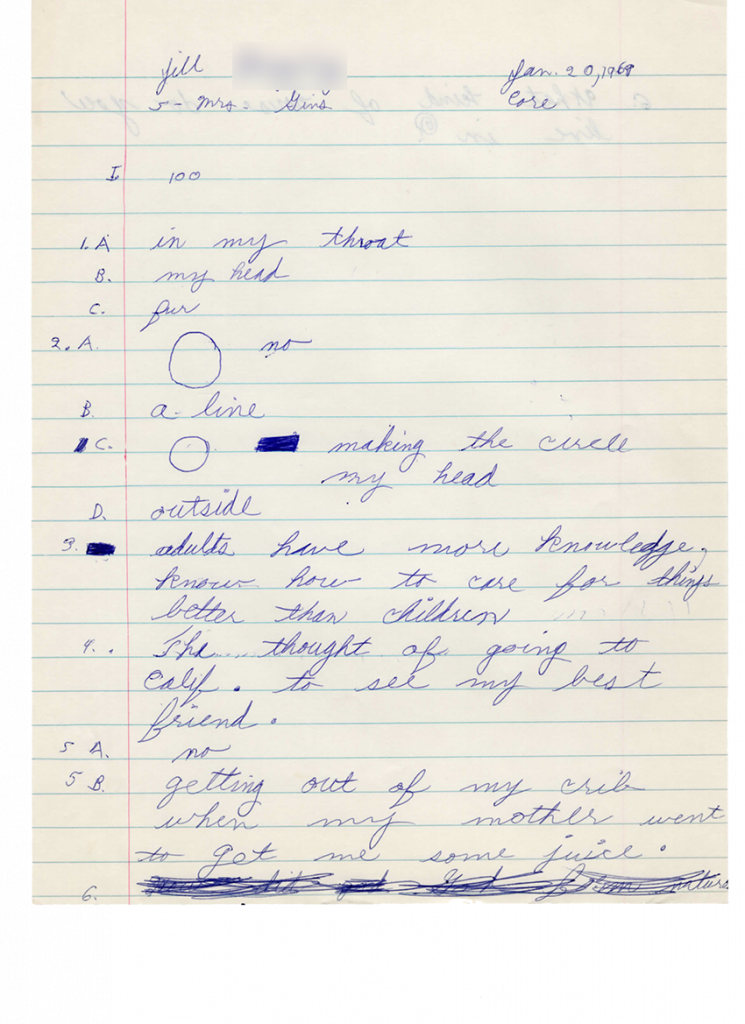 Jill
Jan. 20, 1969
5 - Mrs. Gins
Core
I 100
1. A in my throat
B. my head
C. fur
2. A. no
B. a line
C. making the circle
my head
D. outside
3. adults have more knowledge,
know how to care for things
better than children
4. The thought of going to
Calif. to see my best
friend.
5 A. no
5 B. getting out of my crib
when my mother went
to get me some juice.
6.